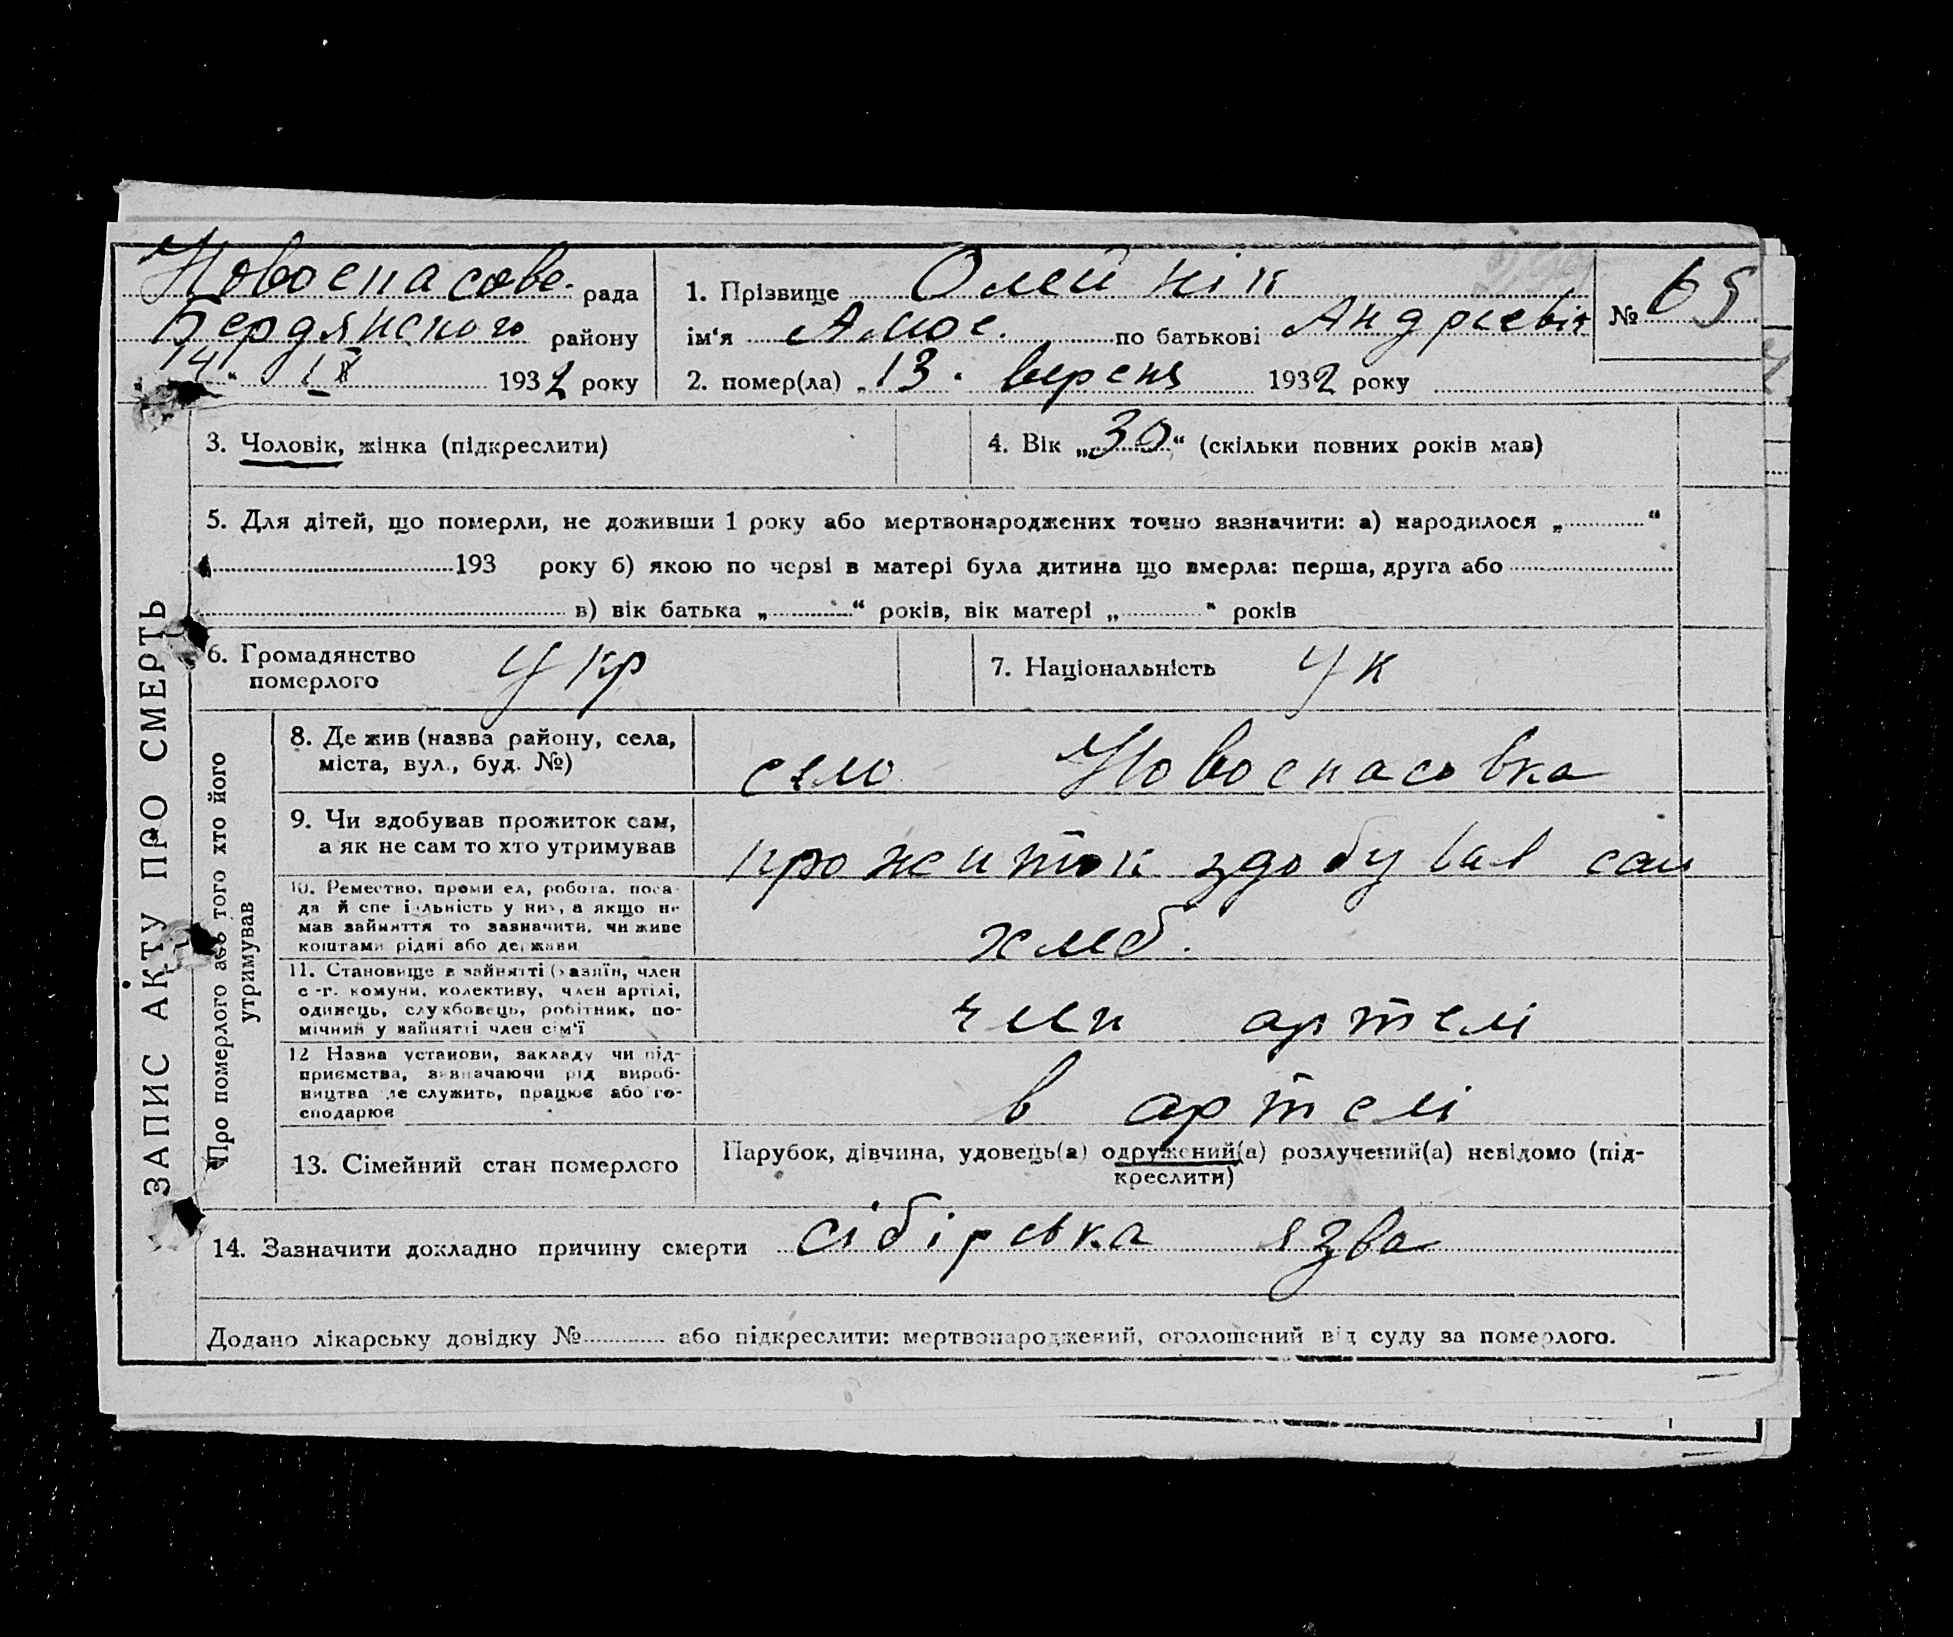 Новоспасове. рада
Бердянського району
"14" IX 1932 року
1. Прізвище Олейнік
ім'я Амос. по батькові Андрієвіч
2. помер(ла) „13" вересня 1932 року
№ 65
3. Чоловік, жінка (підкреслити)
4. Вік „30" (скільки повних років мав)
5. Для дітей, що померли, не доживши 1 року або мертвонароджених точно зазначити: а) народилося „ "
193 року б) якою по черзі в матері була дитина що вмерла: перша, друга або
в) вік батька „ " років, вік матері „ " років
6. Громадянство
померлого
Укр
7. Національність Ук
ЗАПИС АКТУ ПРО СМЕРТЬ
Про померлого або того хто його
утримував
8. Де жив (назва району, села,
міста, вул., буд. №)
село Новоспасовка
9. Чи здобував прожиток сам,
а як не сам то хто утримував
прожиток здобував сам
10. Ремество, промисел, робота, поса-
да й спеціальність у них, а якщо не
мав зайняття то зазначити, чи живе
коштами рідні або держави
хліб.
11. Становище в зайнятті (хазяїн, член
с.-г. комуни, колективу, член артілі,
одинець, службовець, робітник, по-
мічний у зайнятті член сім'ї
член артелі
12 Назва установи, закладу чи під-
приємства, зазначаючи рід вироб-
ництва де служить, працює або го-
сподарює
в артелі
13. Сімейний стан померлого
Парубок, дівчина, удовець(а) одружений(а) розлучений(а) невідомо (під-
креслити)
14. Зазначити докладно причину смерти сібірська язва
Додано лікарську довідку № або підкреслити: мертвонароджений, оголошений від суду за померлого.